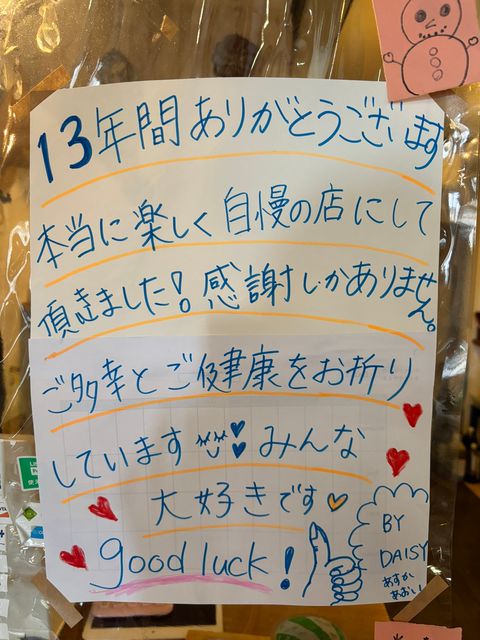 13年間ありがとうございます
本当に楽しく自慢の店にして
頂きました!感謝しかありません。
ご多幸とご健康をお祈り
しています みんな
大好きです
good luck!
BY
DAISY
あすか
あおい